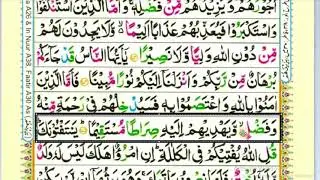 اُجُوْرَهُمْ وَيَزِيْدُهُمْ مِّنْ فَضْلِهٖ وَاَمَّا الَّذِيْنَ اسْتَنْكَفُوْا
وَاسْتَكْبَرُوْا فَيُعَذِّبُهُمْ عَذَابًا اَلِيْمًا وَّلَا يَجِدُوْنَ لَهُمْ
مِّنْ دُوْنِ اللّٰهِ وَلِيًّا وَّلَا نَصِيْرًا يٰۤاَيُّهَا النَّاسُ قَدْ جَآءَكُمْ
بُرْهَانٌ مِّنْ رَّبِّكُمْ وَاَنْزَلْنَاۤ اِلَيْكُمْ نُوْرًا مُّبِيْنًا فَاَمَّا الَّذِيْنَ
اٰمَنُوْا بِاللّٰهِ وَاعْتَصَمُوْا بِهٖ فَسَيُدْخِلُهُمْ فِيْ رَحْمَةٍ مِّنْهُ
وَفَضْلٍ وَّيَهْدِيْهِمْ اِلَيْهِ صِرَاطًا مُّسْتَقِيْمًا يَسْتَفْتُوْنَكَ
قُلِ اللّٰهُ يُفْتِيْكُمْ فِي الْكَلٰلَةِ اِنِ امْرُؤٌا هَلَكَ لَيْسَ لَهٗ وَلَدٌ